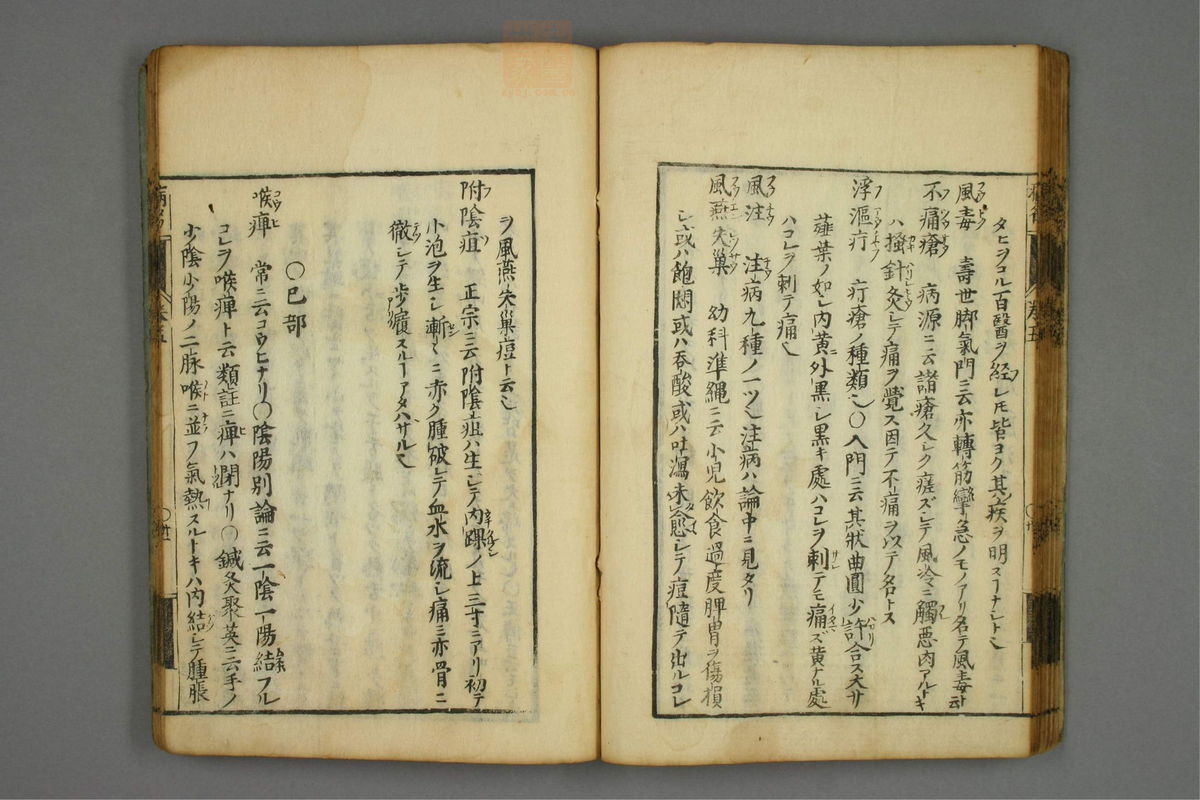 タヒヲコル百醫ヲ經レ𪜈皆ヨク其疾ヲ明スーナシト乄
風毒 壽世脚氣門ニ云亦轉筋攣急ノモノアリ名テ風毒ト云
不痛瘡 病源ニ云諸瘡久シク瘥ズシテ風冷ニ觸惡肉アルトキ
ハ搔針灸シテ痛ヲ覺ス因テ不痛ヲ以テ名トス
浮漚疔 疔瘡ノ種類〇入門ニ云其狀曲圓少許合ス大サ
薤葉ノ如シ内黃外黒シ黒キ處ハコレヲ刺テモ痛ズ黃ナル處
ハコレヲ刺テ痛
風注 注病九種ノ一ツ注病ハ論中ニ見タリ
風燕失巢 幼科準縄ニ云小兒飮食過度脾胃ヲ傷損
シ或ハ飽悶或ハ吞酸或ハ吐瀉未愈シテ痘隨テ出ルコレ
ヲ風燕失巢痘ト云
附陰疽 正宗ニ云附陰疽ハ生シテ内踝ノ上三寸ニアリ初テ
小泡ヲ生シ漸〻ニ赤ク腫破レテ血水ヲ流シ痛ミ亦骨ニ
徹シテ歩履スルーアタハサル
〇己部
喉痺 常ニ云コウヒナリ〇陰陽別論ニ云一陰一陽結フル
コレヲ喉痺ト云類註ニ痺ハ閉ナリ〇鍼灸聚英ニ云手ノ
少陰少陽ノ二脉喉ニ並フ氣熱スルトキハ内結シテ腫脹